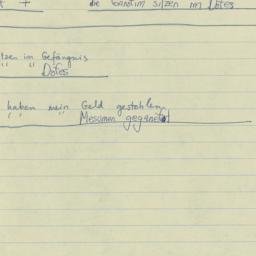 die Banditm sitzen im Dotes
tzen im Gefängnis
" " Dofes
haben mein Geld gestohlen
" " " Mesumen geganeft